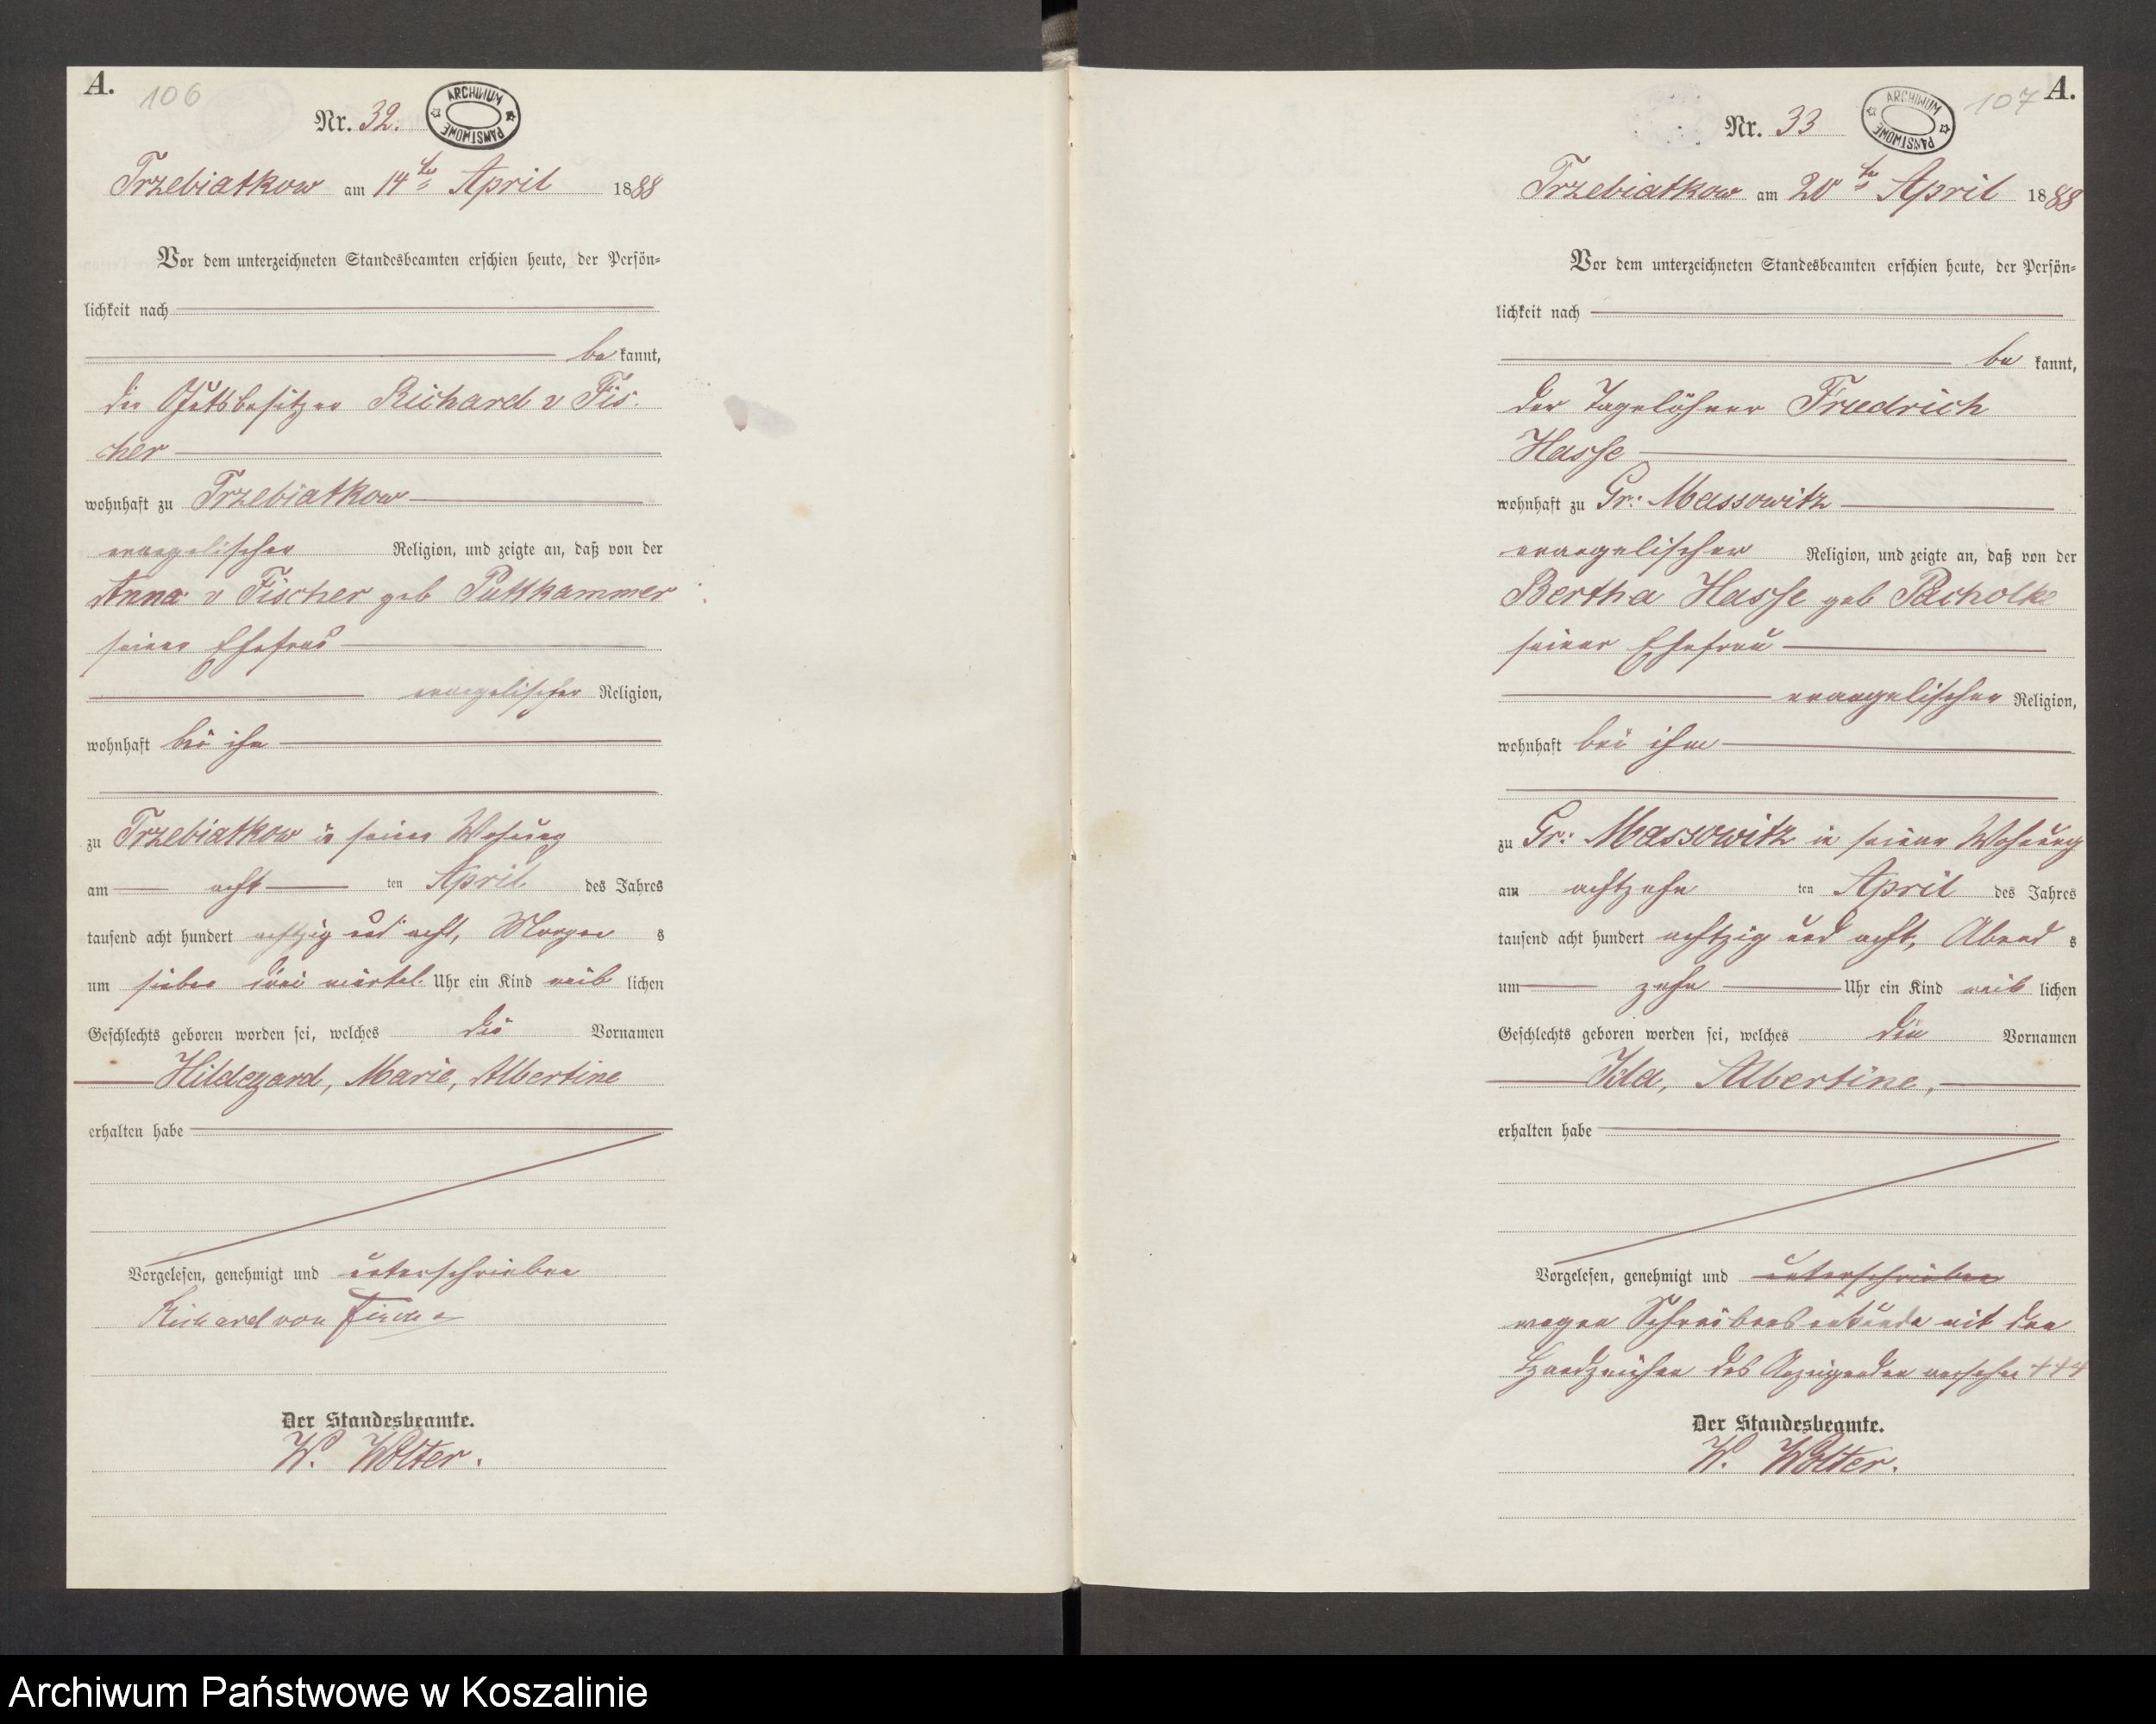 A.
106
Nr. 32.
ARCHIWUM PAŃSTWOWE
Trzebiatkow am 14ten April 1888
Vor dem unterzeichneten Standesbeamten erschien heute, der Persön-
lichkeit nach
be kannt,
der Gutsbesitzer Richard v Fis-
cher
wohnhaft zu Trzebiatkow
evangelischer Religion, und zeigte an, daß von der
Anna v Fischer geb Puttkammer
seiner Ehefrau
evangelischer Religion,
wohnhaft bei ihm
zu Trzebiatkow in seiner Wohnung
am acht ten April des Jahres
tausend acht hundert achtzig und acht, Morgen s
um sieben drei viertel Uhr ein Kind weib lichen
Geschlechts geboren worden sei, welches die Vornamen
Hildegard, Marie, Albertine
erhalten habe
Vorgelesen, genehmigt und unterschrieben
Richard von Fischer
Der Standesbeamte.
W. Wolter.
A.
107
Nr. 33
ARCHIWUM PAŃSTWOWE
Trzebiatkow am 20ten April 1888
Vor dem unterzeichneten Standesbeamten erschien heute, der Persön-
lichkeit nach
be kannt,
der Tagelöhner Friedrich
Hasse
wohnhaft zu Gr: Massowitz
evangelischer Religion, und zeigte an, daß von der
Bertha Hasse geb Pacholke
seiner Ehefrau
evangelischer Religion,
wohnhaft bei ihm
zu Gr: Massowitz in seiner Wohnung
am achtzehn ten April des Jahres
tausend acht hundert achtzig und acht, Abend s
um zehn Uhr ein Kind weib lichen
Geschlechts geboren worden sei, welches die Vornamen
Ida, Albertine,
erhalten habe
Vorgelesen, genehmigt und unterschrieben
wegen Schreibensunkunde mit den
Handzeichen des Anzeigenden versehen +++
Der Standesbeamte.
W. Wolter.
Archiwum Państwowe w Koszalinie